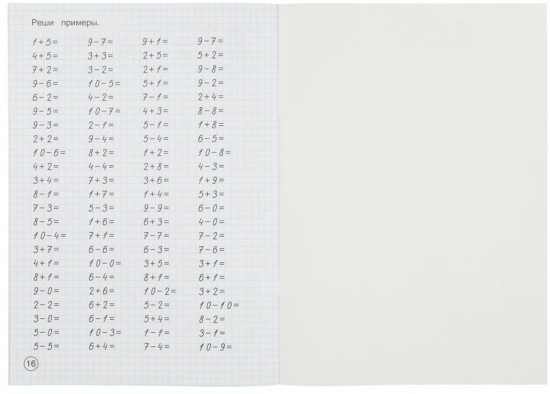 Реши примеры.
1+5= 9-7= 9+1= 9-7=
4+5= 3+3= 2+5= 5+2=
7+2= 3-2= 2+1= 9-8=
9-6= 10-5= 5+1= 9-2=
6-2= 4-2= 7-1= 2+4=
9-5= 10-7= 4+3= 8-8=
9-3= 2-1= 5-1= 1+8=
2+2= 9-4= 5-4= 6-5=
10-6= 8+2= 1+2= 10-8=
4+2= 4-4= 2+8= 4-3=
3+4= 7+3= 3+6= 1+9=
8-1= 1+7= 1+4= 5+3=
7-3= 5-3= 9-9= 6-0=
8-5= 1+6= 6+3= 4-0=
10-4= 7+1= 7-7= 7-2=
3+7= 6-6= 6-3= 7-6=
4+1= 10-0= 3+5= 3+1=
8+1= 6-4= 8+1= 6+1=
9-0= 2+6= 10-2= 3+2=
2-2= 6+2= 5-2= 10-10=
3-0= 6-1= 5+4= 8-2=
5-0= 10-3= 1-1= 3-1=
5-5= 6+4= 7-4= 10-9=
16